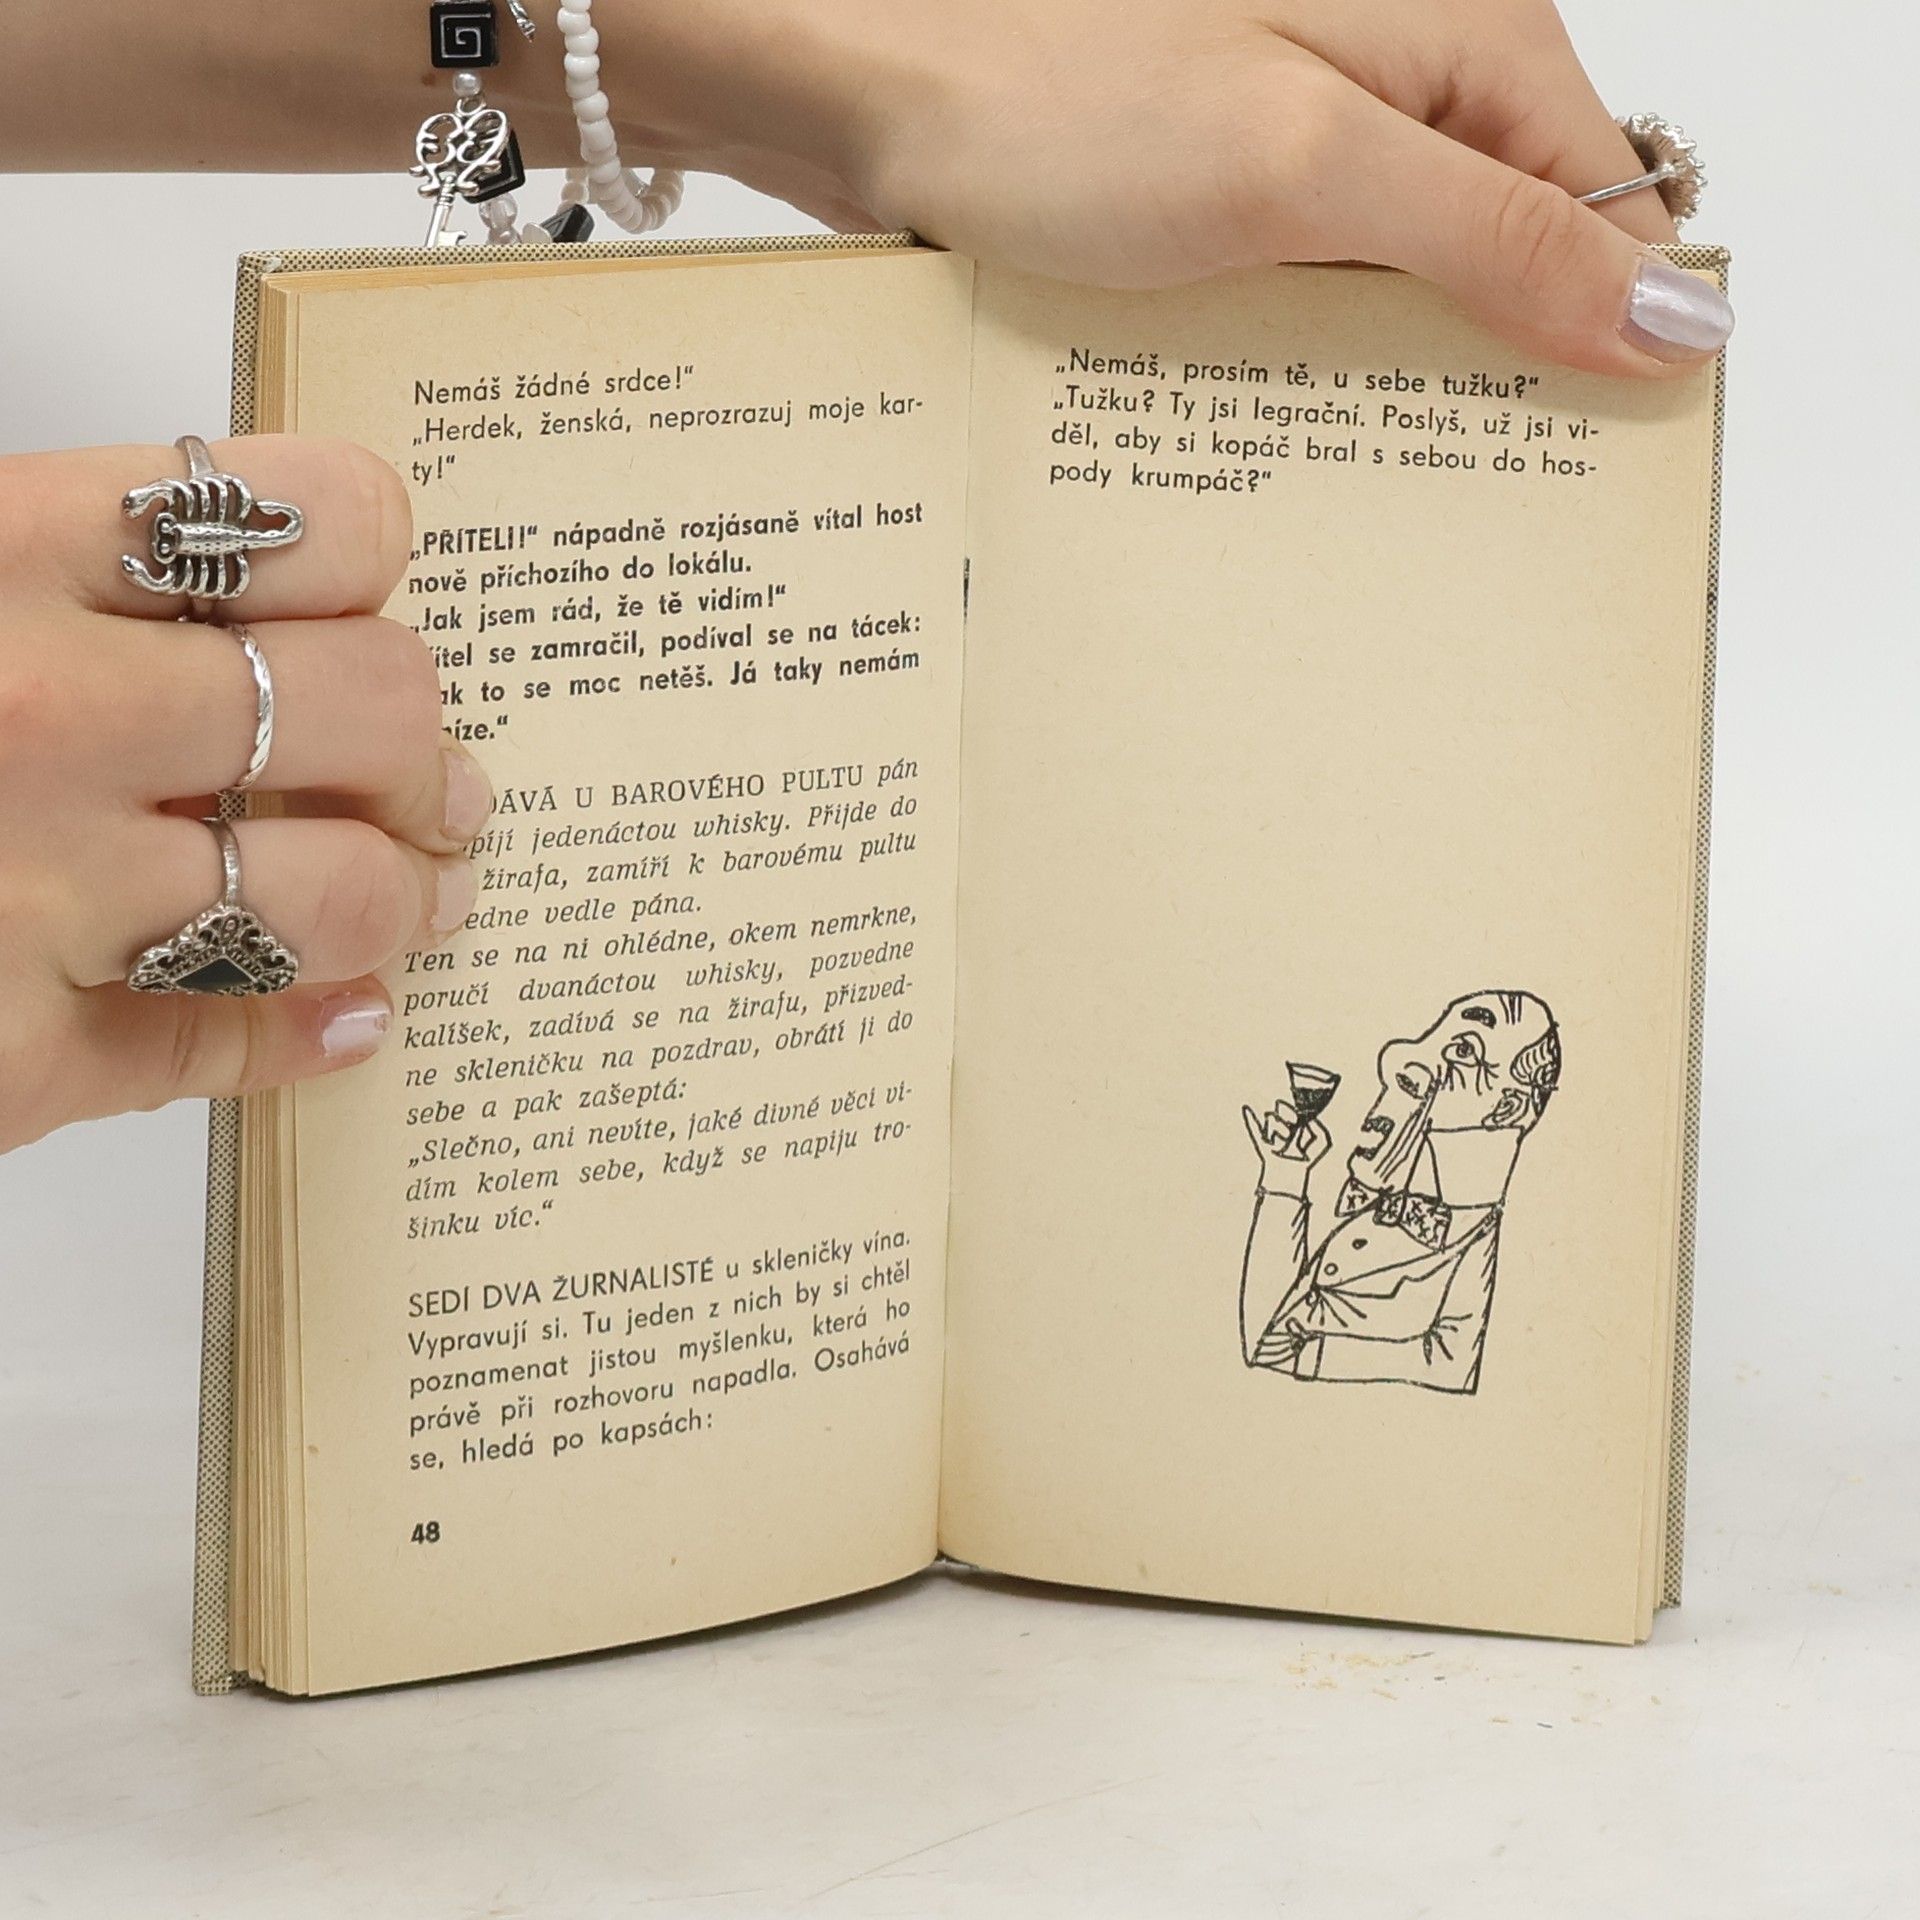 Nemáš žádné srdce!“
„Herdek, ženská, neprozrazuj moje kar-
ty!“
„PŘÍTELI!“ nápadně rozjásaně vítal host
nově příchozího do lokálu.
„Jak jsem rád, že tě vidím!“
se zamračil, podíval se na tácek:
to se moc netěš. Já taky nemám
U BAROVÉHO PULTU pán
jedenáctou whisky. Přijde do
žirafa, zamíří k barovému pultu
vedle pána.
Ten se na ni ohlédne, okem nemrkne,
poručí dvanáctou whisky, pozvedne
kalíšek, zadívá se na žirafu, přizved-
ne skleničku na pozdrav, obrátí ji do
sebe a pak zašeptá:
„Slečno, ani nevíte, jaké divné věci vi-
dím kolem sebe, když se napiju tro-
šinku víc.“
SEDÍ DVA ŽURNALISTÉ u skleničky vína.
Vypravují si. Tu jeden z nich by si chtěl
poznamenat jistou myšlenku, která ho
právě při rozhovoru napadla. Osahává
se, hledá po kapsách:
48
„Nemáš, prosím tě, u sebe tužku?“
„Tužku? Ty jsi legrační. Poslyš, už jsi vi-
děl, aby si kopáč bral s sebou do hos-
pody krumpáč?“